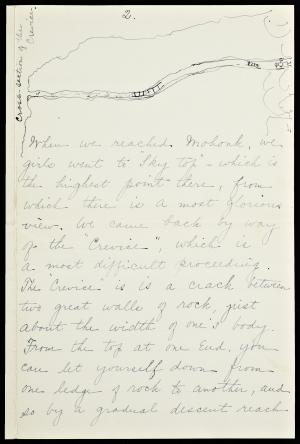 2.
Cross-section of the
Crevice.
When we reached Mohonk, we
girls went to "Sky top" - which is
the highest point there, from
which there is a most glorious
view. We came back by way
of the "Crevice", which is
a most difficult proceeding.
The "Crevice" is is a crack between
two great walls of rock, just
about the width of one's body.
From the top at one End, you
can let yourself down from
one ledge of rock to another, and
so by a gradual descent reach